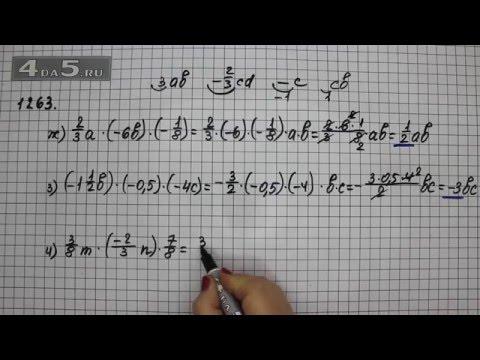 4DA5.RU
3ab -2/3cd -c cb
-1 1
1263.
ж) 2/3a·(-6b)·(-1/8)=2/3·(-6)·(-1/8)·a·b=2·6·1/3·8 ab=1/2ab
2 2
з) (-1 1/2b)·(-0,5)·(-4c)=-3/2·(-0,5)·(-4)·b·c=-3·0,5·4/2 bc=-3bc
2
и) 3/8m·(-2/3n)·7/8= 3